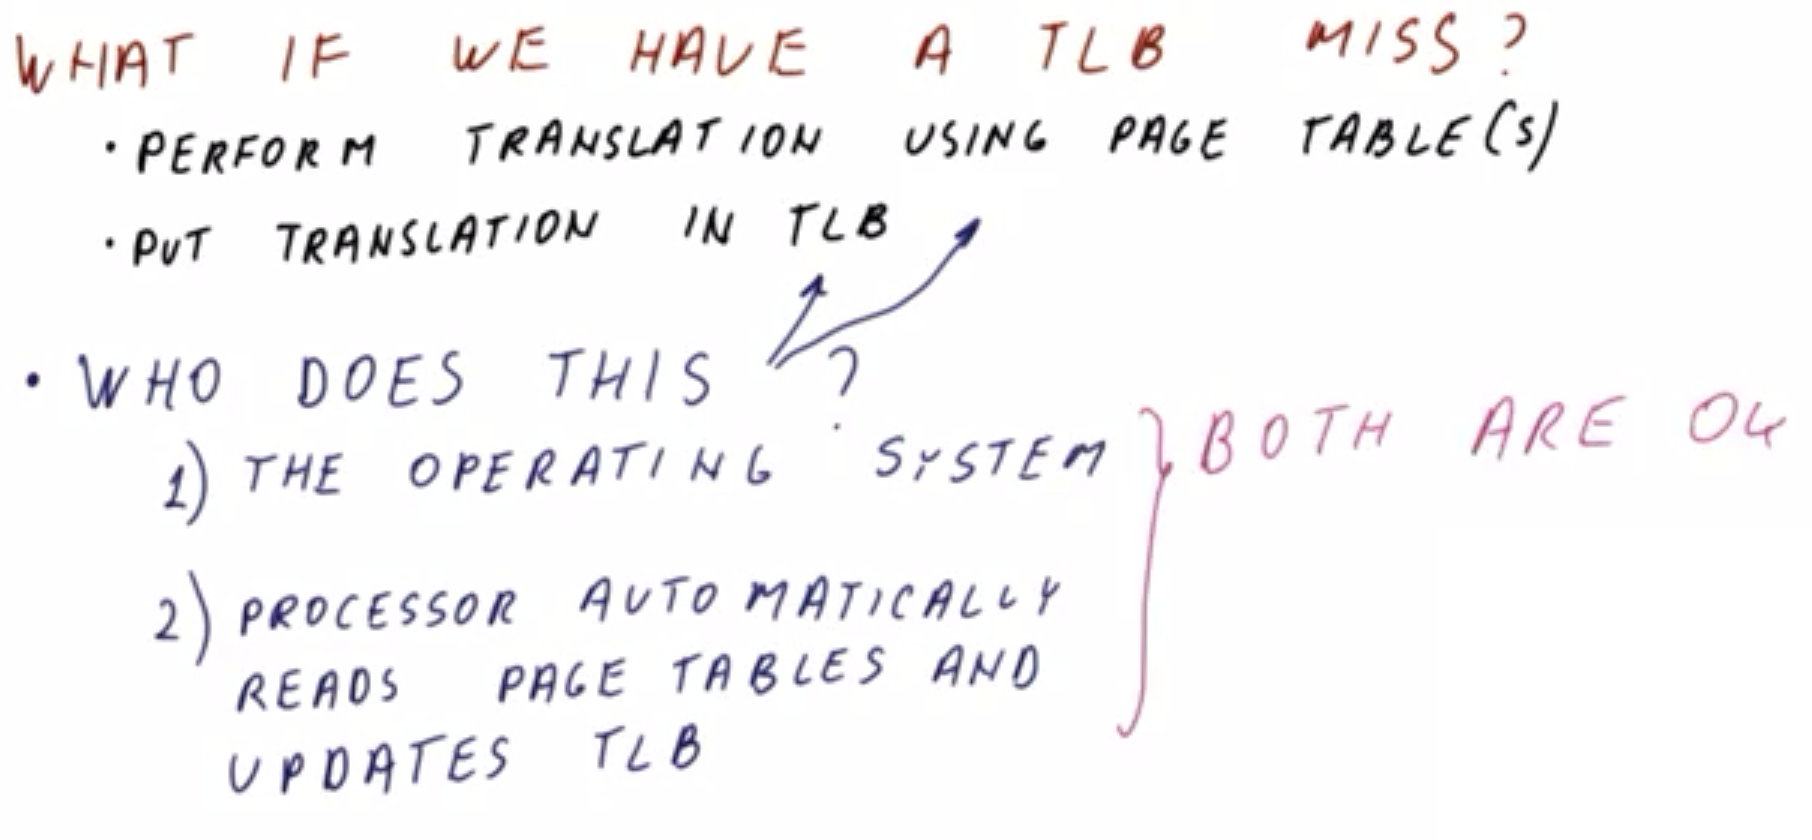 WHAT IF WE HAVE A TLB MISS?
· PERFORM TRANSLATION USING PAGE TABLE(S)
· PUT TRANSLATION IN TLB
· WHO DOES THIS ?
1) THE OPERATING SYSTEM
} BOTH ARE OK
2) PROCESSOR AUTOMATICALLY
READS PAGE TABLES AND
UPDATES TLB